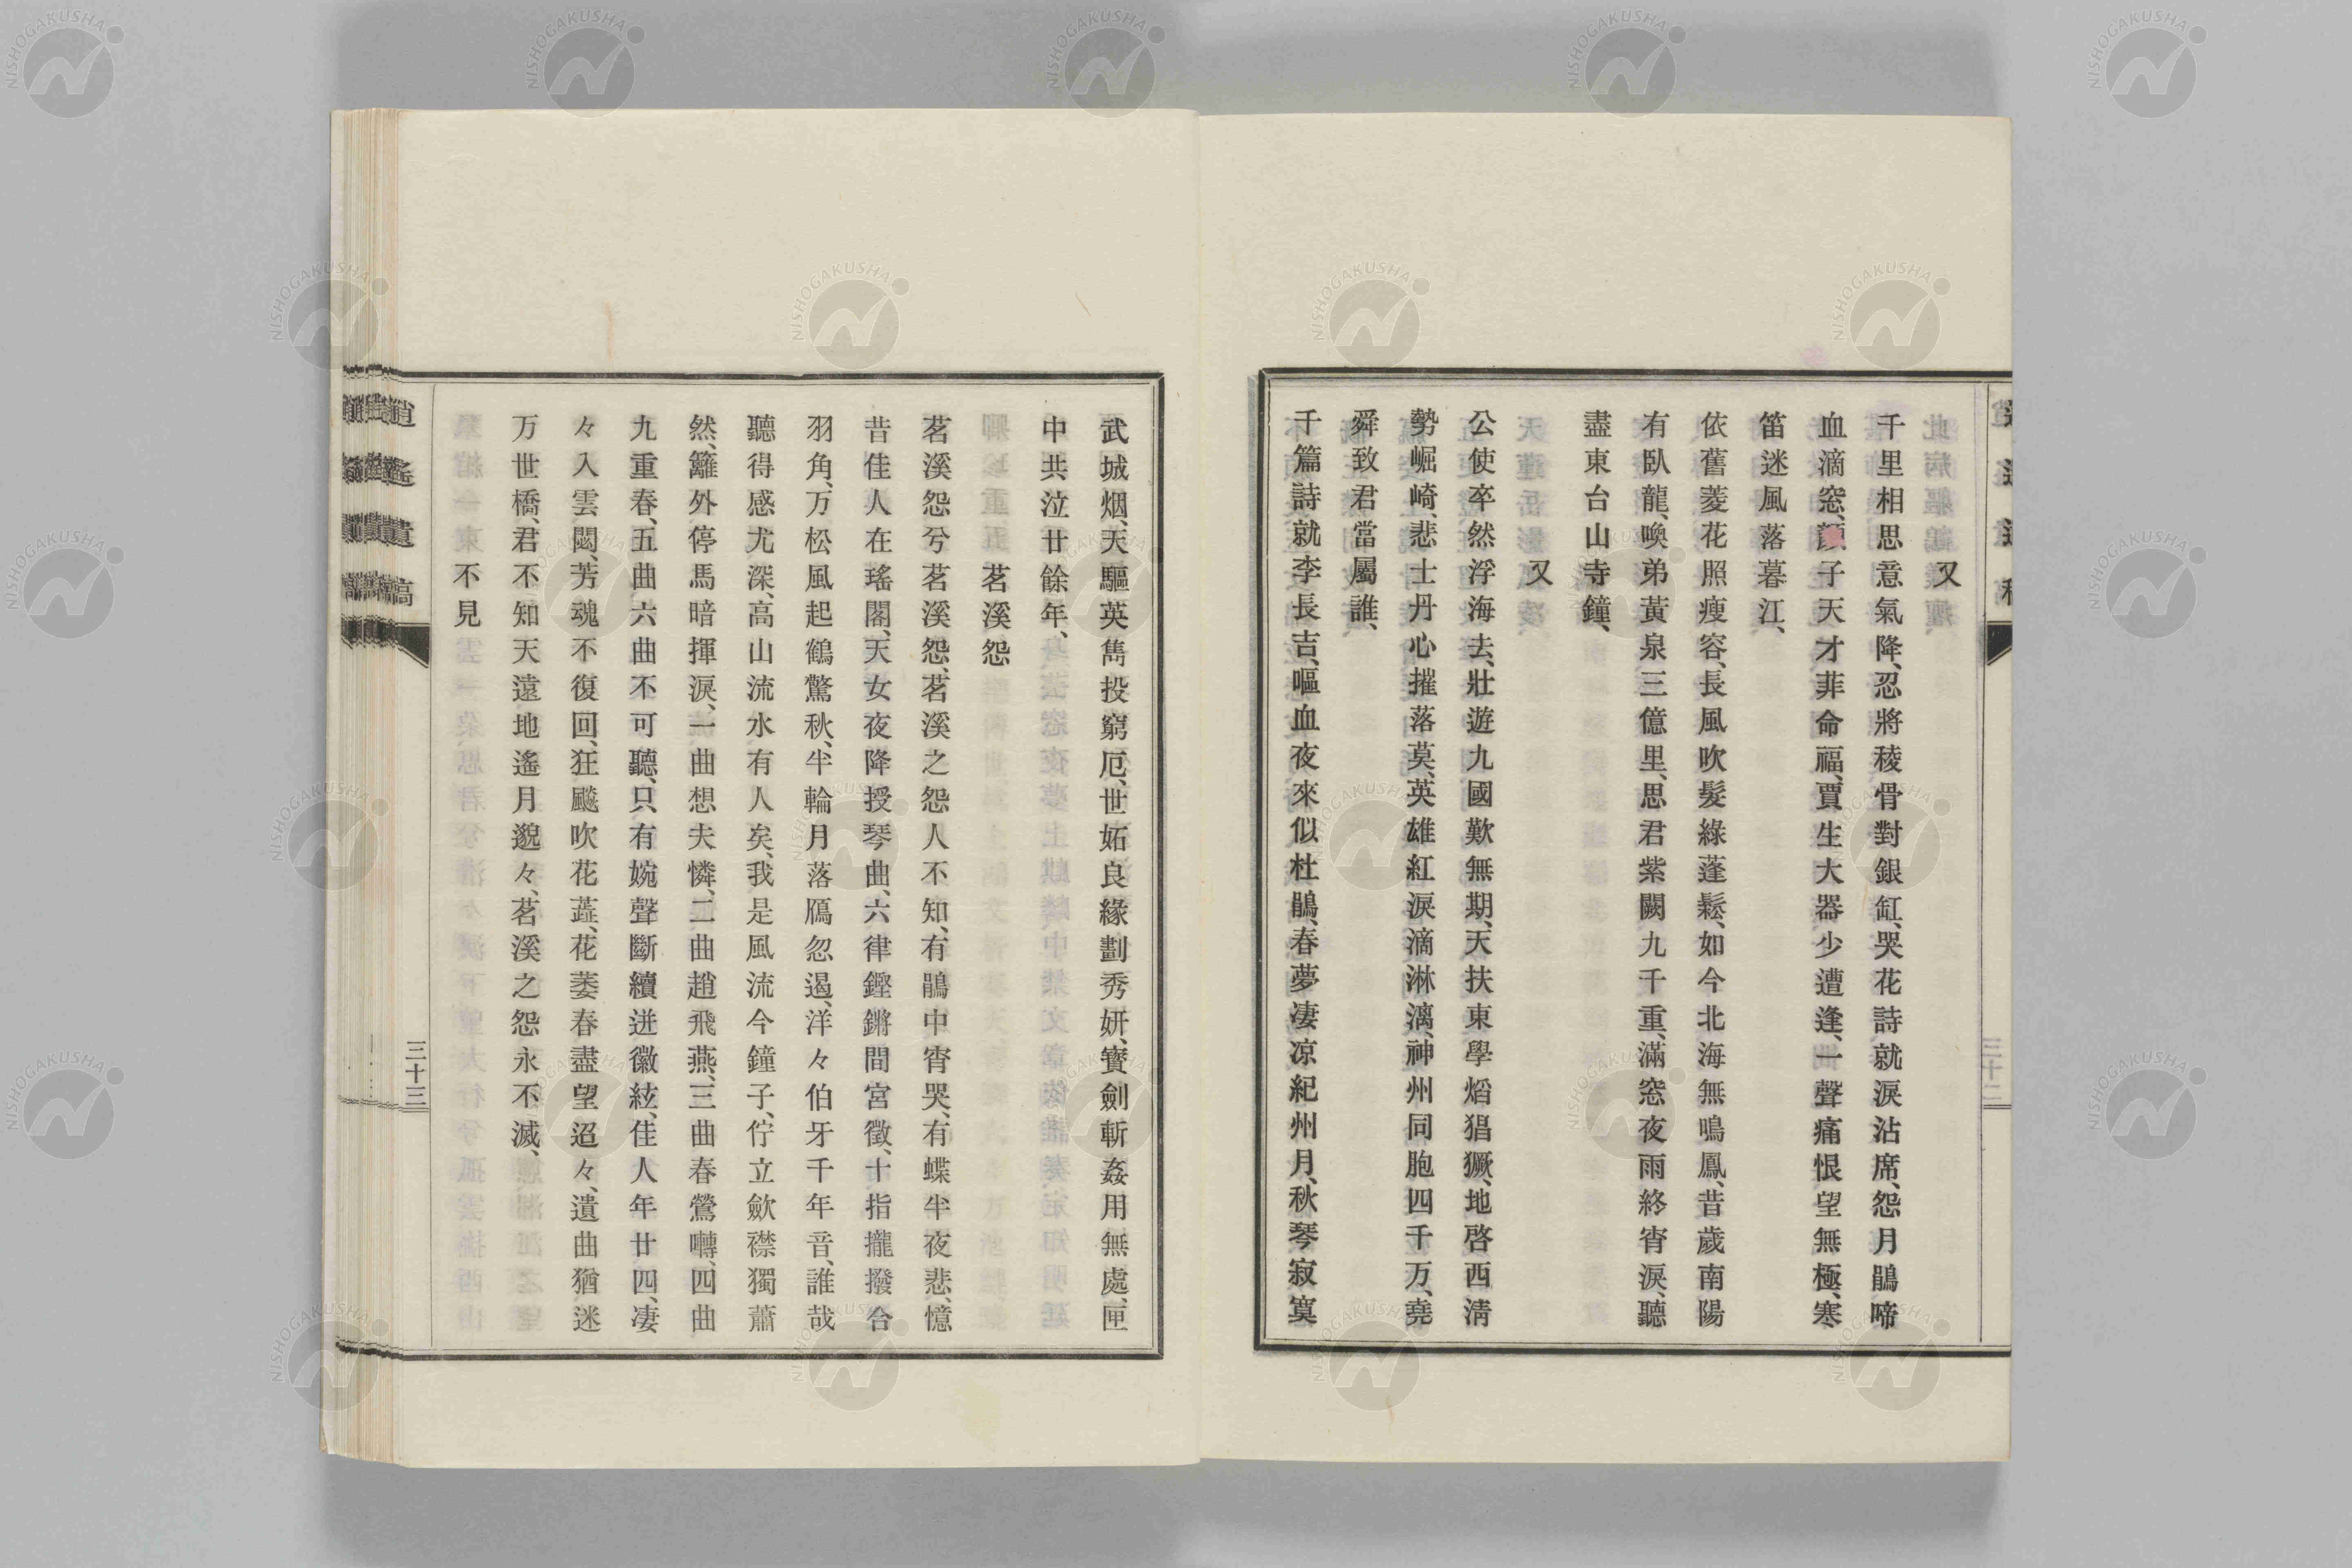 又
千里相思意氣降、忍將稜骨對銀缸、哭花詩就淚沾席、怨月鵑啼
血滴窓、顏子天才菲命福、賈生大器少遭逢、一聲痛恨望無極、寒
笛迷風落暮江、
依舊菱花照瘦容、長風吹髮綠蓬鬆、如今北海無鳴鳳、昔歲南陽
有臥龍、喚弟黃泉三億里、思君紫闕九千重、滿窓夜雨終宵淚、聽
盡東台山寺鐘、
又
公使卒然浮海去、壯遊九國歎無期、天扶東學熖猖獗、地啓西淸
勢崛崎、悲士丹心摧落莫、英雄紅淚滴淋漓、神州同胞四千万、堯
舜致君當屬誰、
千篇詩就李長吉、嘔血夜來似杜鵑、春夢凄凉紀州月、秋琴寂寞
武城烟、天驅英雋投窮厄、世妬良緣劃秀妍、寶劍斬姦用無處、匣
中共泣廿餘年、
茗溪怨
茗溪怨兮茗溪怨、茗溪之怨人不知、有鵑中宵哭、有蝶半夜悲、憶
昔佳人在瑤閣、天女夜降授琴曲、六律鏗鏘間宮徵、十指攏撥合
羽角、万松風起鶴驚秋、半輪月落鴈忽遏、洋々伯牙千年音、誰哉
聽得感尤深、高山流水有人矣、我是風流今鐘子、佇立歛襟獨蕭
然、籬外停馬暗揮淚、一曲想夫憐、二曲趙飛燕、三曲春鶯囀、四曲
九重春、五曲六曲不可聽、只有婉聲斷續迸徽絃、佳人年廿四、凄
々入雲閟、芳魂不復回、狂飈吹花蘂、花萎春盡望迢々、遺曲猶迷
万世橋、君不知天遠地遙月邈々、茗溪之怨永不滅、
不見
逍遙遺稿
三十三